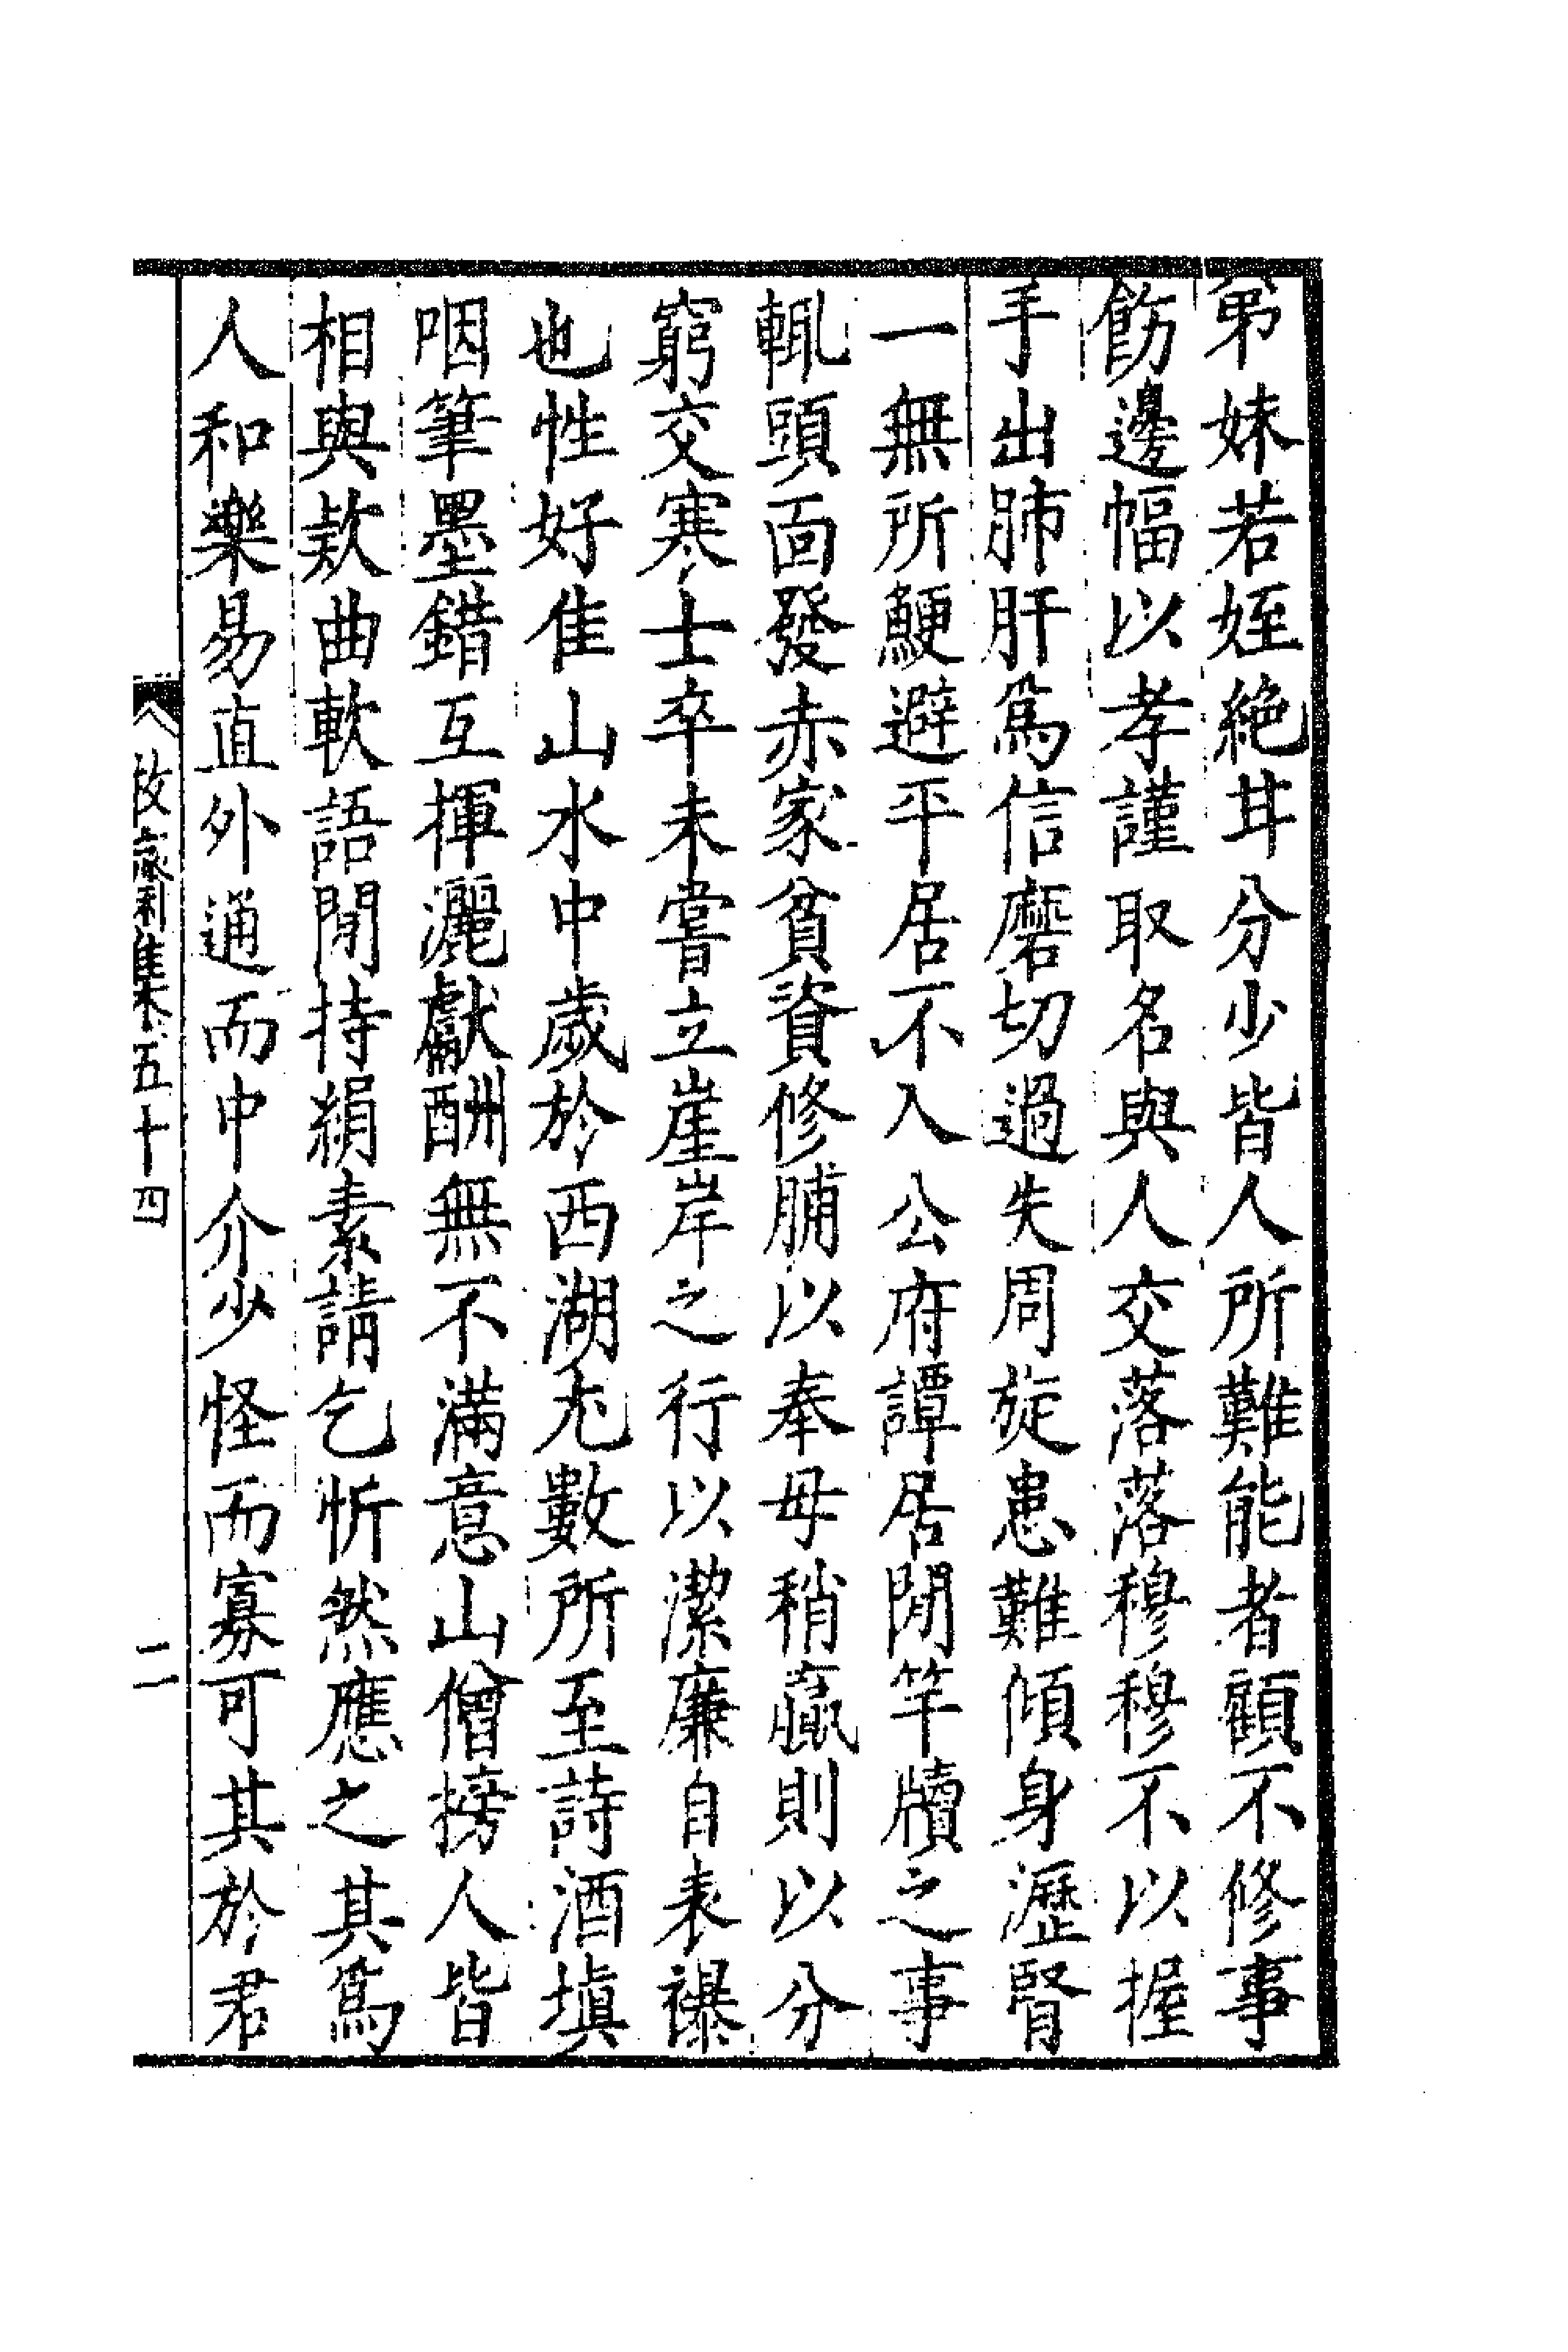 弟妹若姪絶甘分少皆人所難能者顧不修事
飭邊幅以孝謹取名與人交落落穆穆不以握
手出肺肝爲信磨切過失周旋患難傾身瀝腎
一無所鯁避平居不入公府譚居閒竿牘之事
輒頭面發赤家貧資修脯以奉母稍羸則以分
窮交寒士卒未嘗立崖岸之行以潔廉自表襮
也性好佳山水中歲於西湖尤數所至詩酒塡
咽筆墨錯互揮灑獻酬無不滿意山僧搒人皆
相與欵曲軟語閒持絹素請乞忻然應之其爲
人和樂易直外通而中介少怪而寡可其於君
牧齋集五十四 二